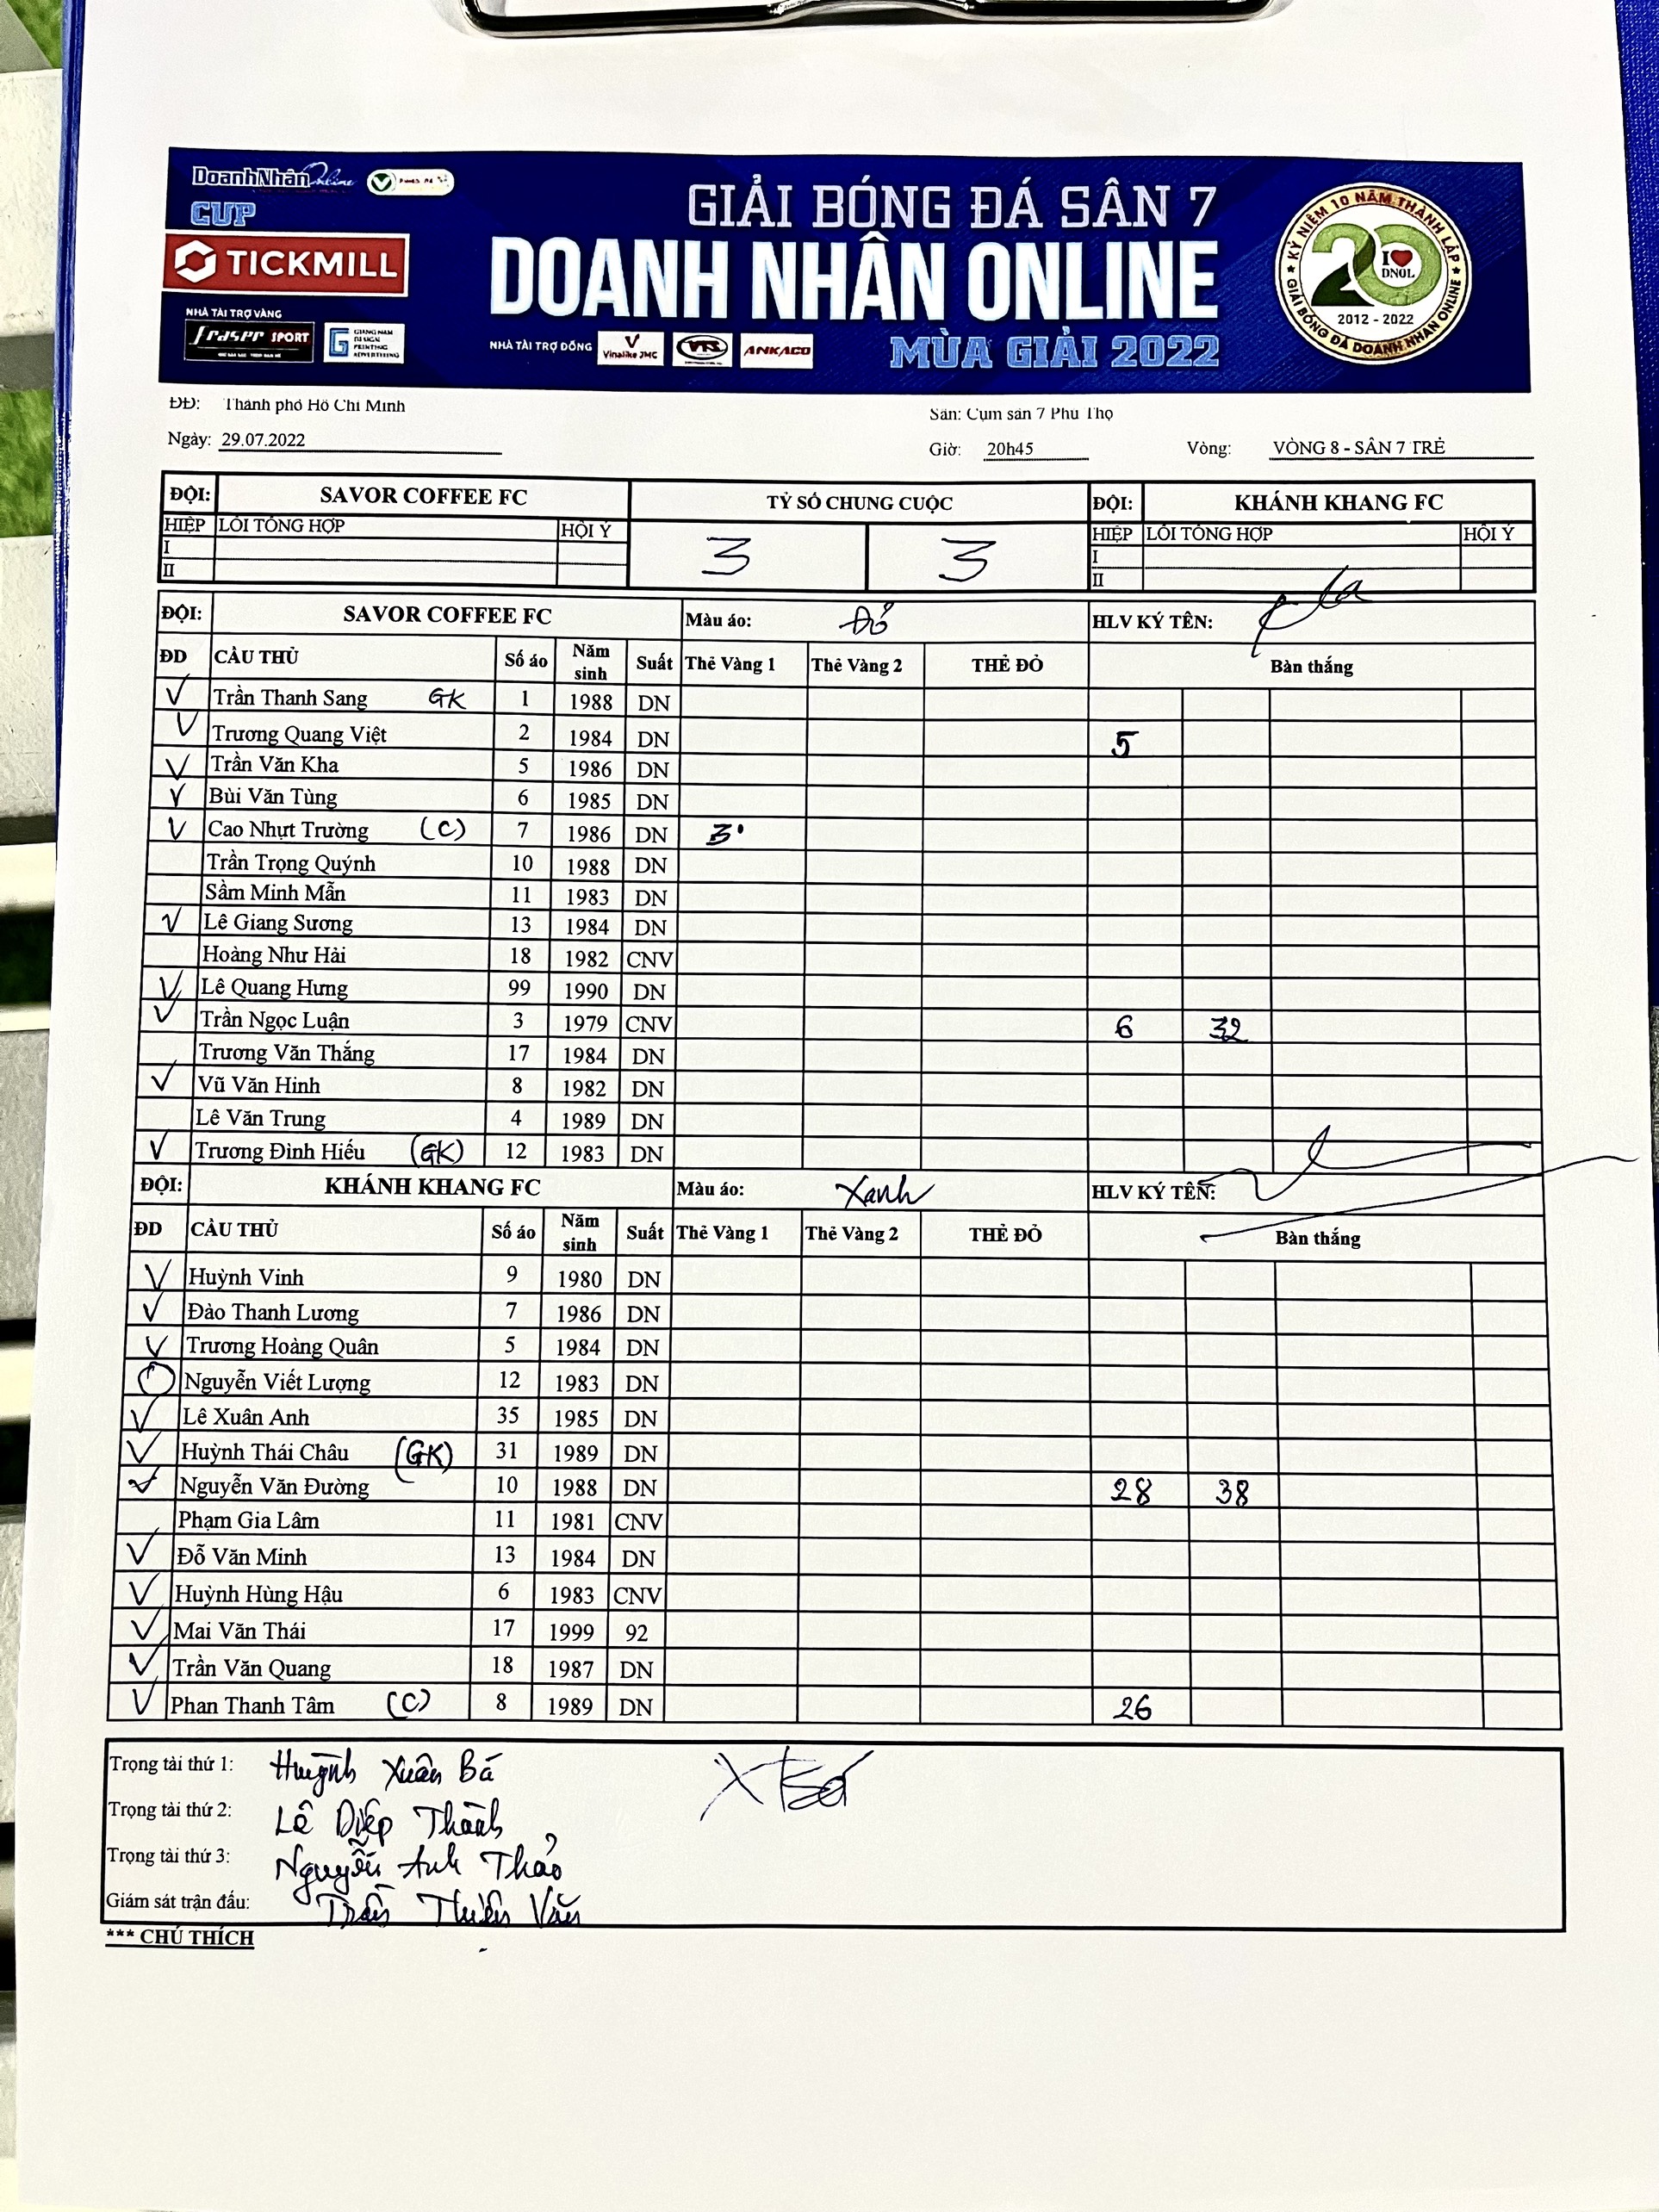 DoanhNhân Online
CUP
TICKMILL
NHÀ TÀI TRỢ VÀNG
fraser SPORT
GIANG NAM
DESIGN
PRINTING
ADVERTISING
GIẢI BÓNG ĐÁ SÂN 7
DOANH NHÂN ONLINE
MÙA GIẢI 2022
NHÀ TÀI TRỢ ĐỒNG
Vinalike JMC
VR
ANKACO
KỶ NIỆM 10 NĂM THÀNH LẬP
20
I ❤ DNOL
2012 - 2022
GIẢI BÓNG ĐÁ DOANH NHÂN ONLINE
ĐĐ: Thành phố Hồ Chí Minh
Sân: Cụm sân 7 Phú Thọ
Ngày: 29.07.2022
Giờ: 20h45
Vòng: VÒNG 8 - SÂN 7 TRẺ
ĐỘI: SAVOR COFFEE FC TỶ SỐ CHUNG CUỘC ĐỘI: KHÁNH KHANG FC
HIỆP LỖI TỔNG HỢP HỘI Ý 3 3 HIỆP LỖI TỔNG HỢP HỘI Ý
I I
II II
ĐỘI: SAVOR COFFEE FC Màu áo: Đỏ HLV KÝ TÊN:
ĐD CẦU THỦ Số áo Năm sinh Suất Thẻ Vàng 1 Thẻ Vàng 2 THẺ ĐỎ Bàn thắng
V Trần Thanh Sang GK 1 1988 DN
V Trương Quang Việt 2 1984 DN 5
V Trần Văn Kha 5 1986 DN
V Bùi Văn Tùng 6 1985 DN
V Cao Nhựt Trường (C) 7 1986 DN 3'
Trần Trọng Quýnh 10 1988 DN
Sầm Minh Mẫn 11 1983 DN
V Lê Giang Sương 13 1984 DN
Hoàng Như Hải 18 1982 CNV
V Lê Quang Hưng 99 1990 DN
V Trần Ngọc Luận 3 1979 CNV 6 32
Trương Văn Thắng 17 1984 DN
V Vũ Văn Hinh 8 1982 DN
Lê Văn Trung 4 1989 DN
V Trương Đình Hiếu (GK) 12 1983 DN
ĐỘI: KHÁNH KHANG FC Màu áo: Xanh HLV KÝ TÊN:
ĐD CẦU THỦ Số áo Năm sinh Suất Thẻ Vàng 1 Thẻ Vàng 2 THẺ ĐỎ Bàn thắng
V Huỳnh Vinh 9 1980 DN
V Đào Thanh Lương 7 1986 DN
V Trương Hoàng Quân 5 1984 DN
Nguyễn Viết Lượng 12 1983 DN
V Lê Xuân Anh 35 1985 DN
V Huỳnh Thái Châu (GK) 31 1989 DN
V Nguyễn Văn Đường 10 1988 DN 28 38
Phạm Gia Lâm 11 1981 CNV
V Đỗ Văn Minh 13 1984 DN
V Huỳnh Hùng Hậu 6 1983 CNV
V Mai Văn Thái 17 1999 92
V Trần Văn Quang 18 1987 DN
V Phan Thanh Tâm (C) 8 1989 DN 26
Trọng tài thứ 1: Huỳnh Xuân Bá
Trọng tài thứ 2: Lê Diệp Thành
Trọng tài thứ 3: Nguyễn Anh Thảo
Giám sát trận đấu: Trần Thiện Văn
*** CHÚ THÍCH